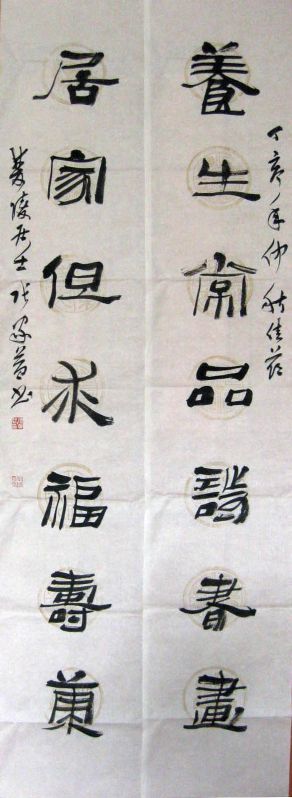 丁亥年仲秋佳節
養生常品詩書畫
居家但求福壽康
陵居士張書